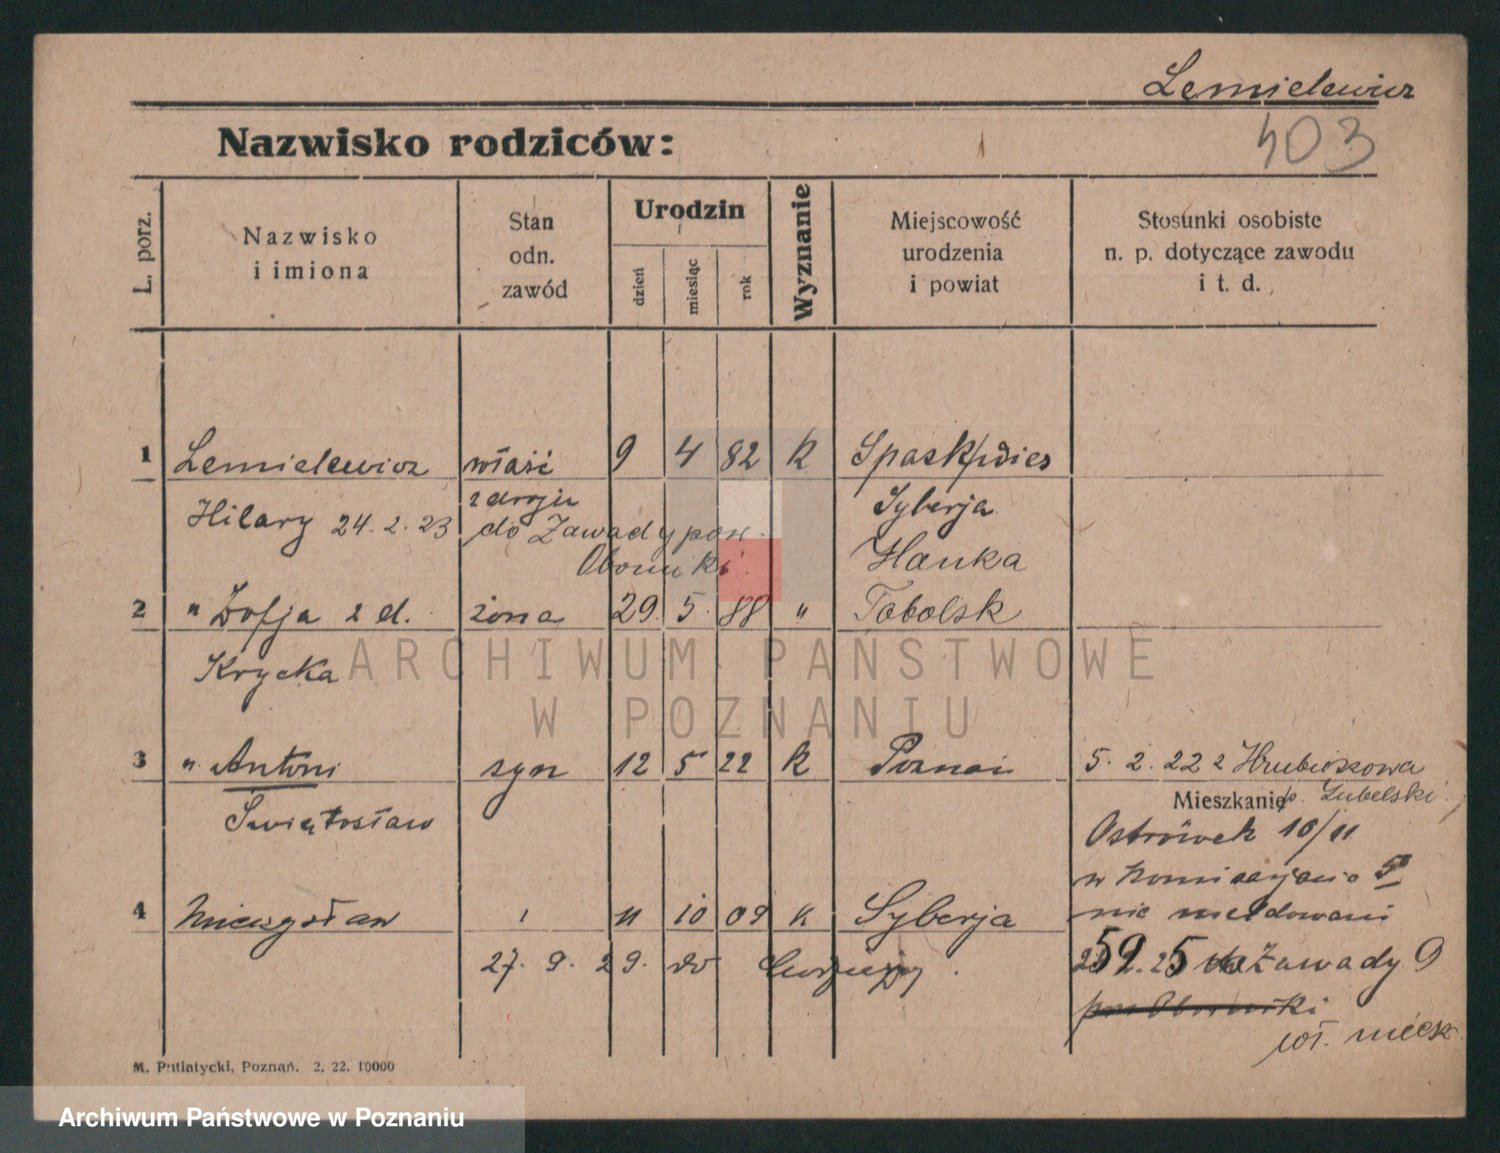 Lemielewicz
403
Nazwisko rodziców:
L. porz.
Nazwisko
i imiona
Stan
odn.
zawód
Urodzin
dzień
miesiąc
rok
Wyznanie
Miejscowość
urodzenia
i powiat
Stosunki osobiste
n. p. dotyczące zawodu
i t. d.
1 Lemielewicz właść 9 4 82 k
zdroju
Syberja
Hilary 24.2.23 do Zawady pow.
Oborniki
Hanka
2 " Zofja z d. żona 29. 5. 88 " Tobolsk
Krycka
ARCHIWUM PAŃSTWOWE
W POZNANIU
3 " Antoni syn 12 5 22 k Poznań 5. 2. 22 z Hrubieszowa
Mieszkanie p. Lubelski
Świętosław
Ostrówek 10/11
w komisarjacie 5
4 Mieczysław 11 10 09 k Syberja nie meldowani
27. 9. 29. do
Zawady 9
pow Oborniki
wł. miesz
M. Putiatycki, Poznań. 2, 22. 10000
Archiwum Państwowe w Poznaniu